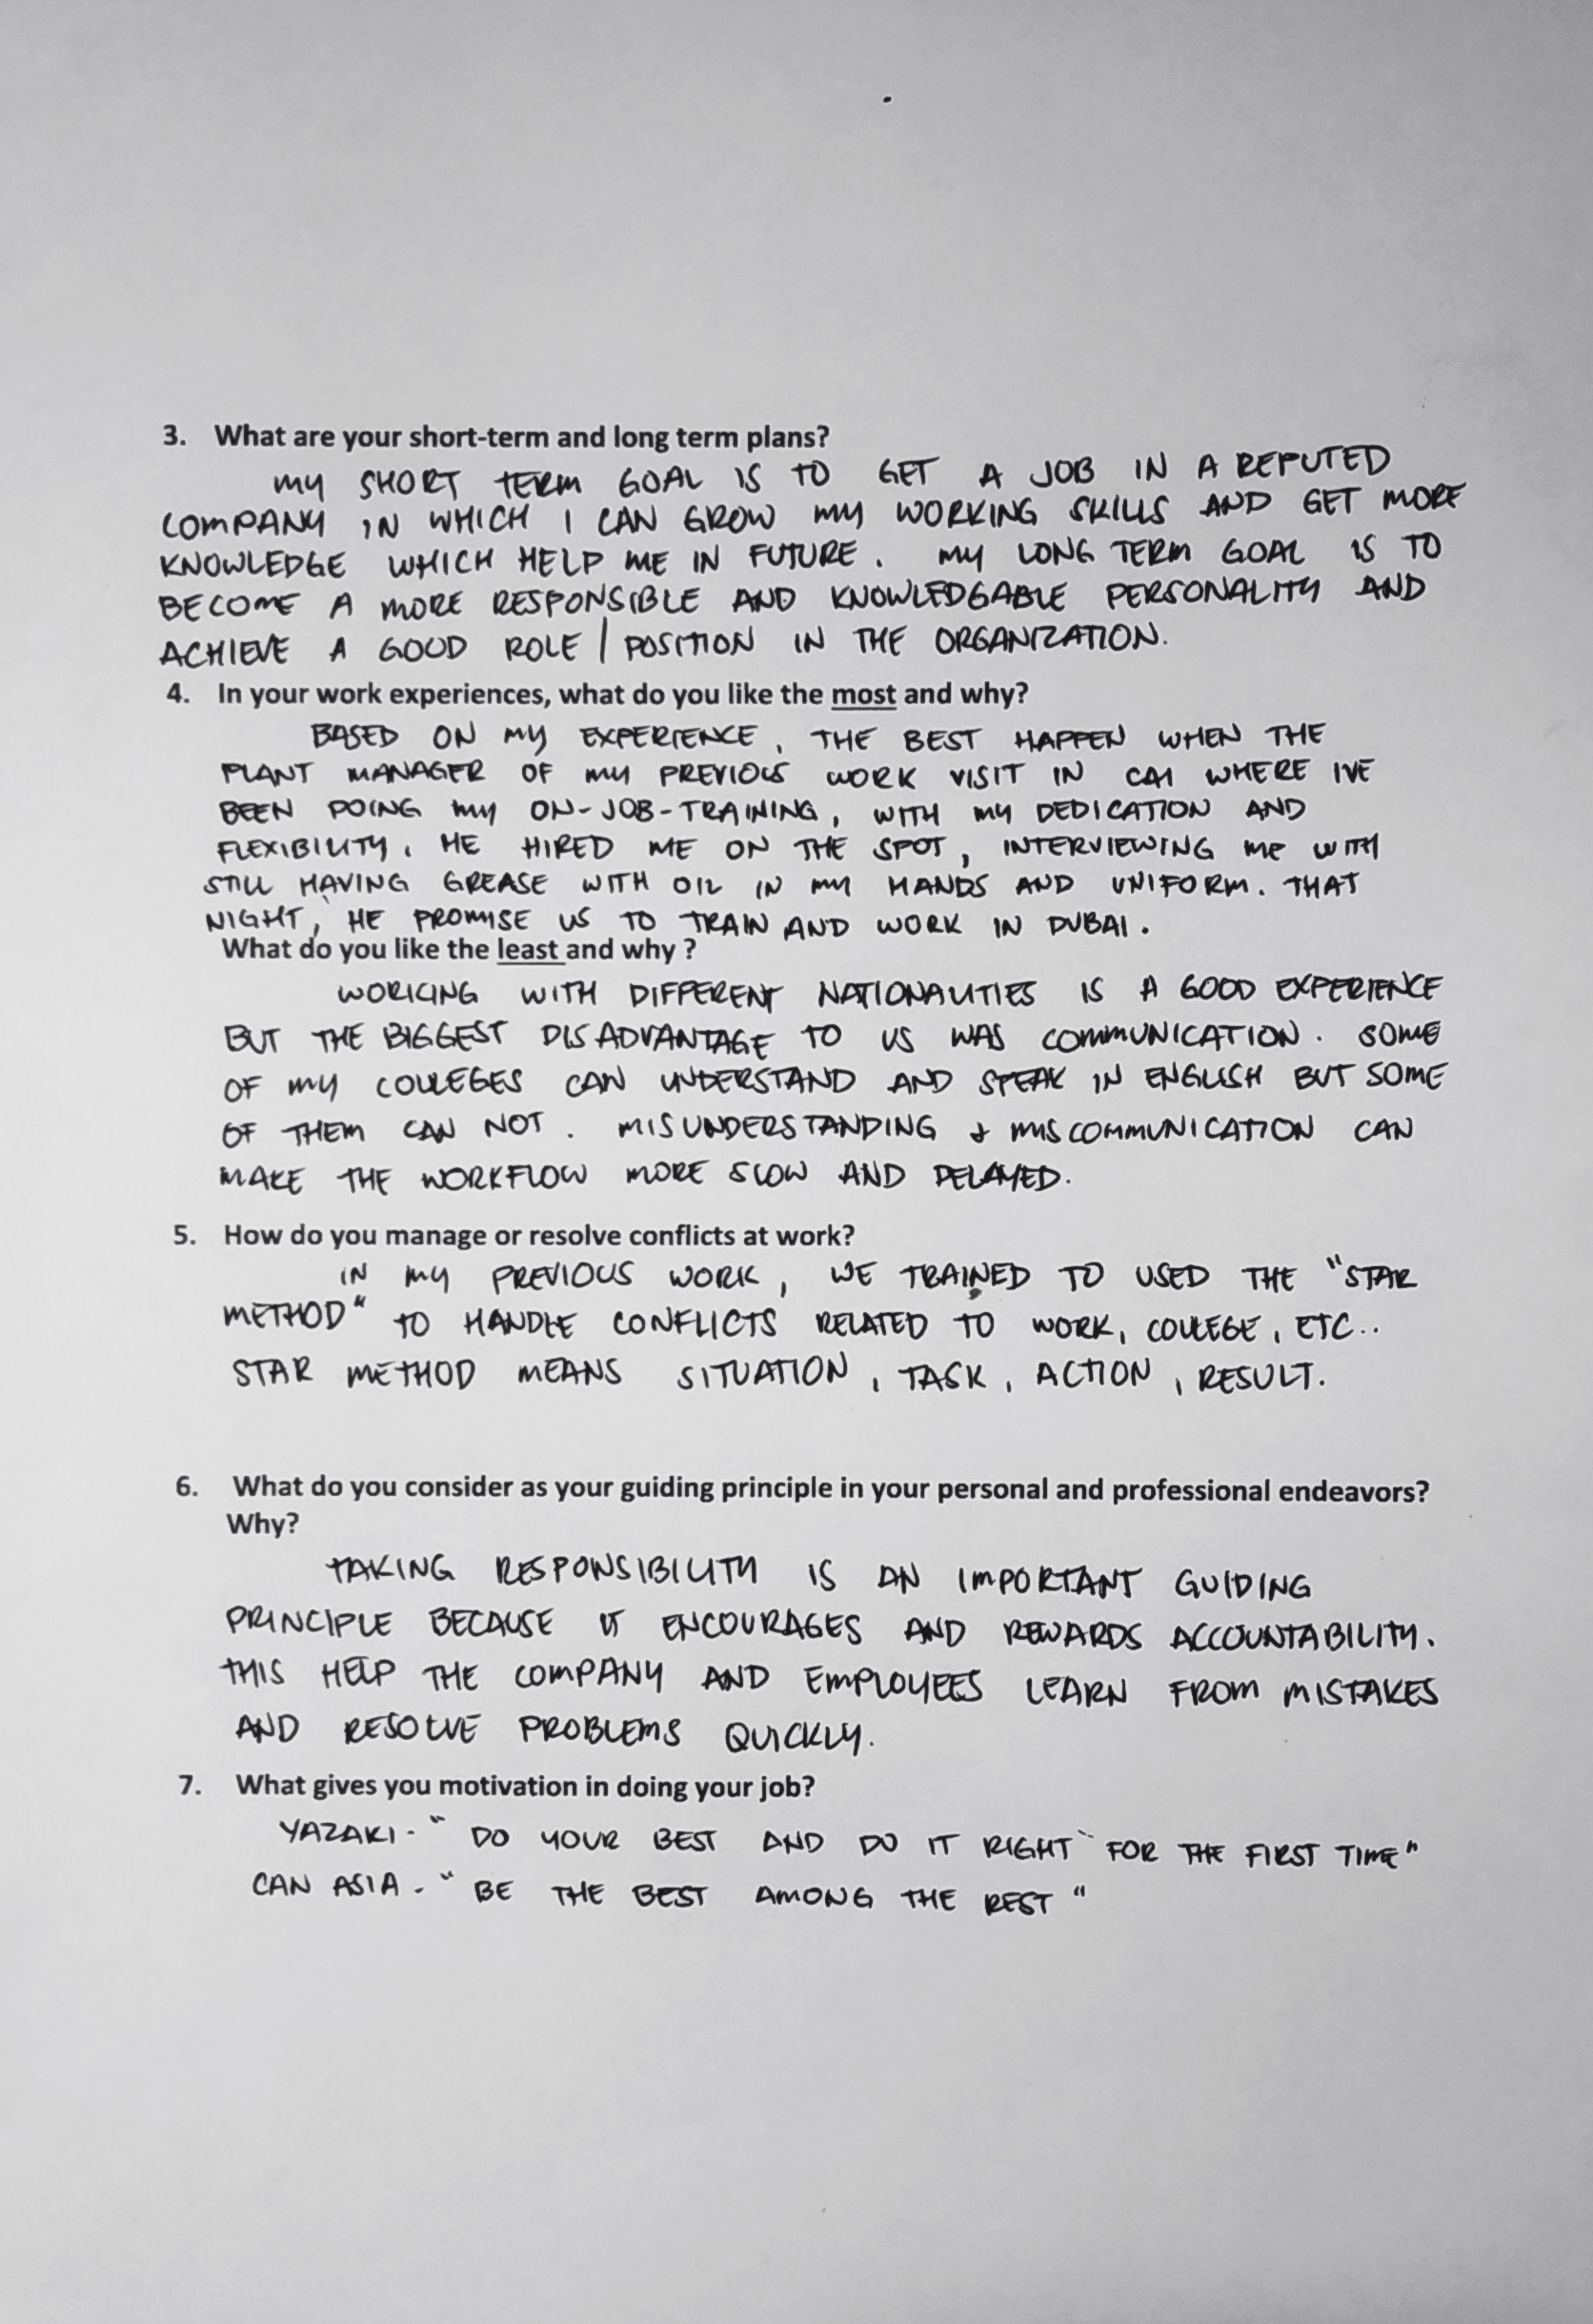 3. What are your short-term and long term plans?
MY SHORT TERM GOAL IS TO GET A JOB IN A REPUTED
COMPANY IN WHICH I CAN GROW MY WORKING SKILLS AND GET MORE
KNOWLEDGE WHICH HELP ME IN FUTURE. MY LONG TERM GOAL IS TO
BECOME A MORE RESPONSIBLE AND KNOWLEDGABLE PERSONALITY AND
ACHIEVE A GOOD ROLE / POSITION IN THE ORGANIZATION.
4. In your work experiences, what do you like the most and why?
BASED ON MY EXPERIENCE, THE BEST HAPPEN WHEN THE
PLANT MANAGER OF MY PREVIOUS WORK VISIT IN CAI WHERE IVE
BEEN DOING MY ON-JOB-TRAINING, WITH MY DEDICATION AND
FLEXIBILITY, HE HIRED ME ON THE SPOT, INTERVIEWING ME WITH
STILL HAVING GREASE WITH OIL IN MY HANDS AND UNIFORM. THAT
NIGHT, HE PROMISE US TO TRAIN AND WORK IN DUBAI.
What do you like the least and why ?
WORKING WITH DIFFERENT NATIONALITIES IS A GOOD EXPERIENCE
BUT THE BIGGEST DISADVANTAGE TO US WAS COMMUNICATION. SOME
OF MY COLLEGES CAN UNDERSTAND AND SPEAK IN ENGLISH BUT SOME
OF THEM CAN NOT. MISUNDERSTANDING & MISCOMMUNICATION CAN
MAKE THE WORKFLOW MORE SLOW AND DELAYED.
5. How do you manage or resolve conflicts at work?
IN MY PREVIOUS WORK, WE TRAINED TO USED THE "STAR
METHOD" TO HANDLE CONFLICTS RELATED TO WORK, COLLEGE, ETC..
STAR METHOD MEANS SITUATION, TASK, ACTION, RESULT.
6. What do you consider as your guiding principle in your personal and professional endeavors?
Why?
TAKING RESPONSIBILITY IS AN IMPORTANT GUIDING
PRINCIPLE BECAUSE IT ENCOURAGES AND REWARDS ACCOUNTABILITY.
THIS HELP THE COMPANY AND EMPLOYEES LEARN FROM MISTAKES
AND RESOLVE PROBLEMS QUICKLY.
7. What gives you motivation in doing your job?
YAZAKI - "DO YOUR BEST AND DO IT RIGHT FOR THE FIRST TIME"
CAN ASIA - "BE THE BEST AMONG THE REST"